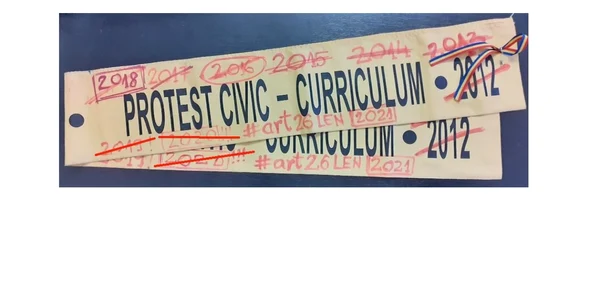 2018 2017 2016 2015 2014 2013
PROTEST CIVIC – CURRICULUM • 2012
2019! 2020!!! #art26LEN 2021
CURRICULUM • 2012
2020!!! #art26LEN 2021